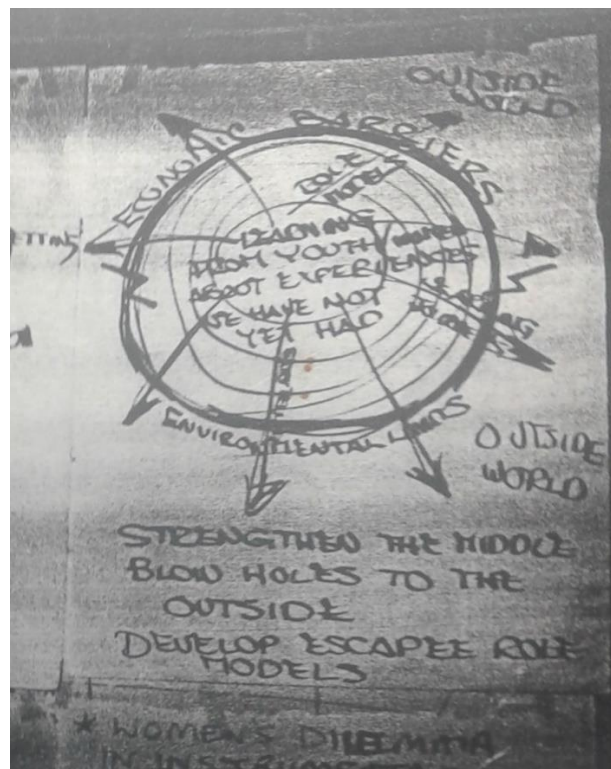 OUTSIDE
WORLD
ECONOMIC BARRIERS
ROLE
MODELS
LEARNING
FROM YOUTH
ABOUT EXPERIENCES
WE HAVE NOT
YET HAD
ENVIRONMENTAL LIMITS
OUTSIDE
WORLD
STRENGTHEN THE MIDDLE
BLOW HOLES TO THE
OUTSIDE
DEVELOP ESCAPEE ROLE
MODELS
* WOMEN'S DILEMMA